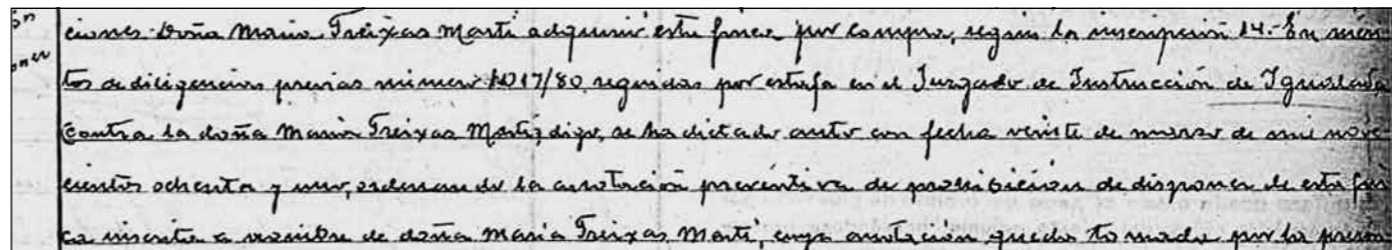 ciones Doña Maria Treixas Marti adquirió esta finca por compra, según la inscripción 14.- En méri-
tos de diligencias previas número 1017/80, seguidas por estafa en el Juzgado de Instrucción de Igualada
contra la doña Maria Treixas Marti, digo, se ha dictado auto con fecha veinte de marzo de mil nove-
cientos ochenta y uno, ordenando la anotación preventiva de prohibición de disponer de esta fin-
ca inscrita a nombre de doña Maria Treixas Marti, cuya anotación queda tomada por la presen